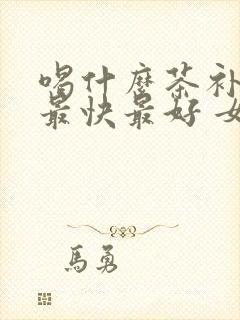 喝什麼茶补
最快最好 女
馬勇